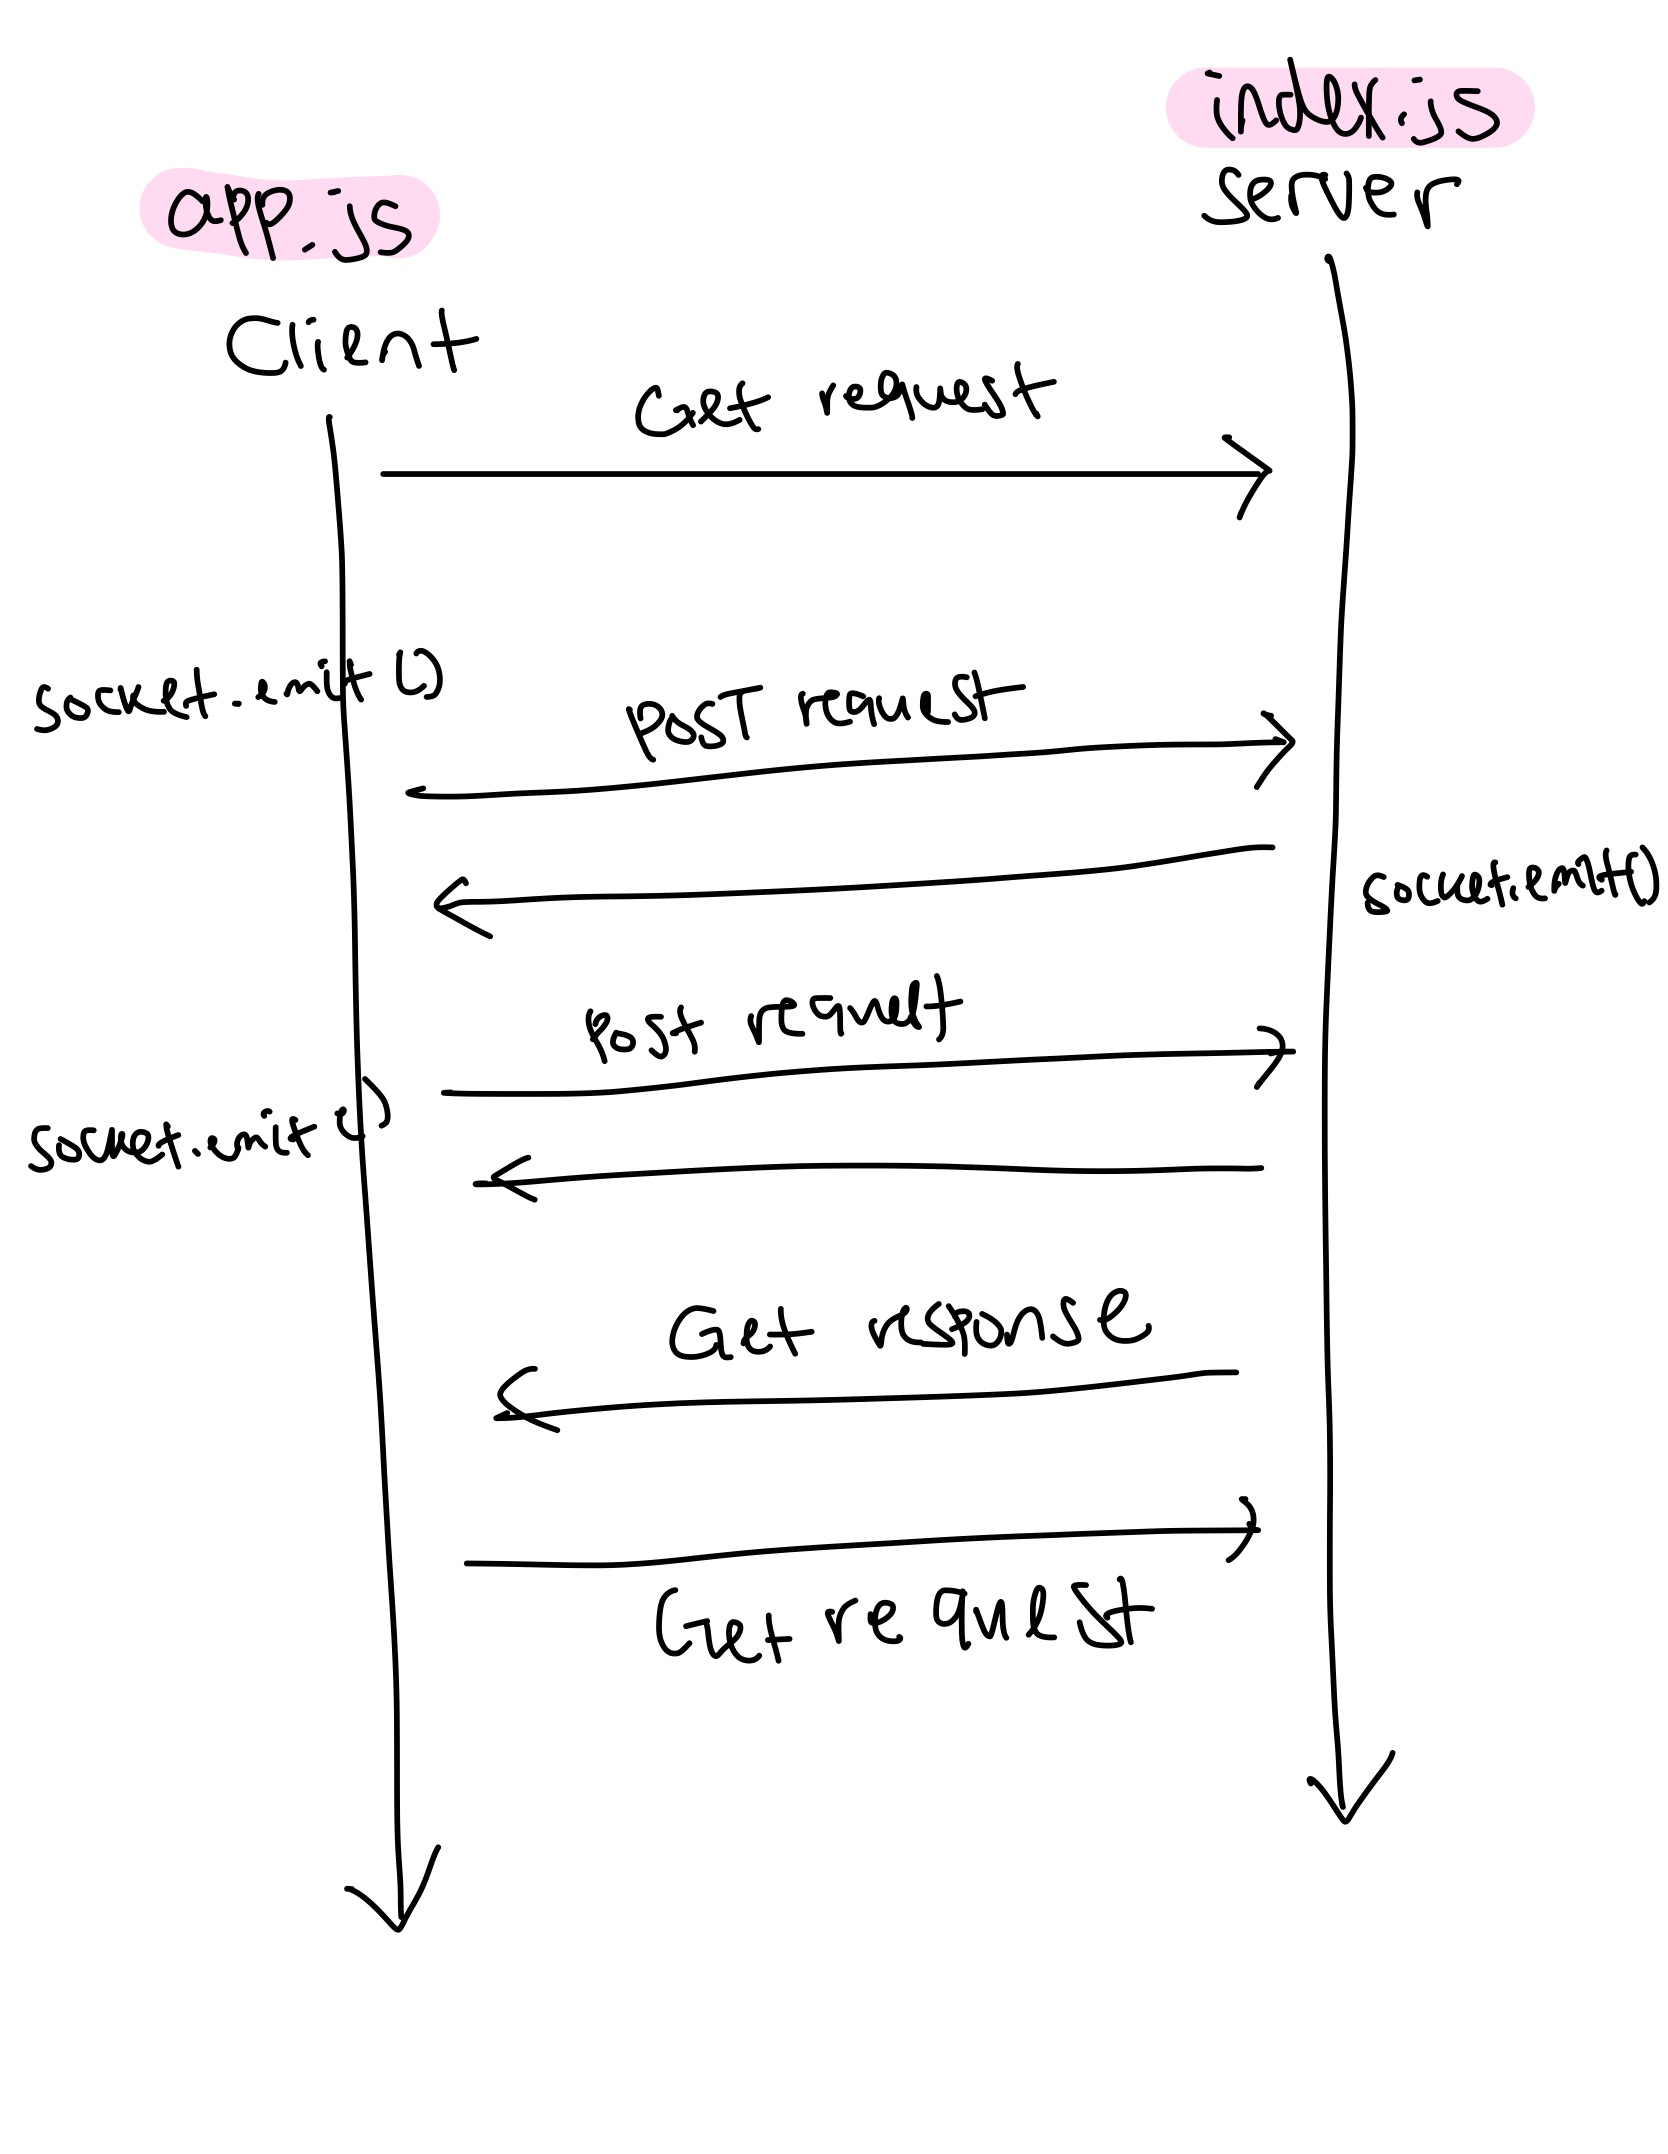 index.js
server
app.js
Client
Get request
socket.emit()
POST request
socket.emit()
Post request
socket.emit()
Get response
Get request